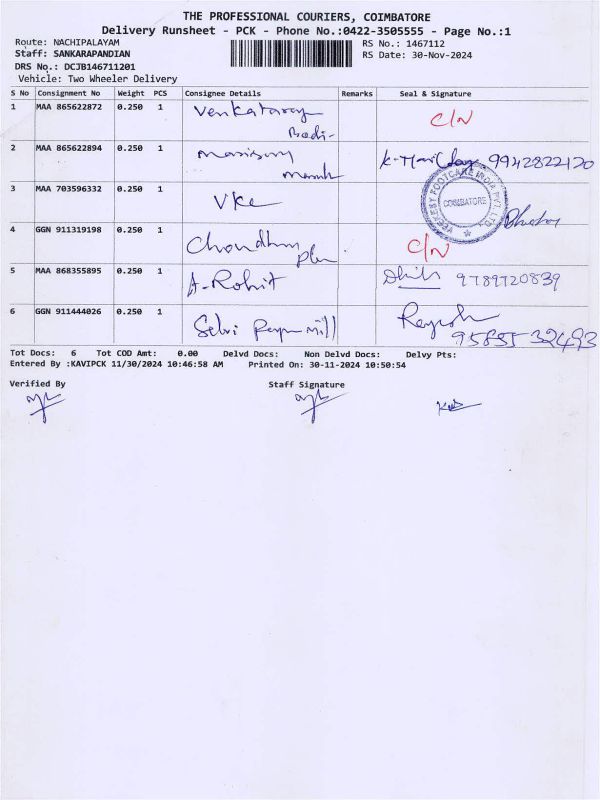 THE PROFESSIONAL COURIERS, COIMBATORE
Delivery Runsheet - PCK - Phone No.:0422-3505555 - Page No.:1
Route: NACHIPALAYAM
RS No.: 1467112
Staff: SANKARAPANDIAN
RS Date: 30-Nov-2024
DRS No.: DCJB146711201
Vehicle: Two Wheeler Delivery
S No Consignment No Weight PCS Consignee Details Remarks Seal & Signature
1 MAA 865622872 0.250 1 C/N
2 MAA 865622894 0.250 1 9942822120
3 MAA 703596332 0.250 1 VKC
VEEKESY FOOTCARE INDIA PVT. LTD
COIMBATORE
4 GGN 911319198 0.250 1 C/N
5 MAA 868355895 0.250 1 A-Rohit 9789720839
6 GGN 911444026 0.250 1 Selvi mill
9585532493
Tot Docs: 6 Tot COD Amt: 0.00 Delvd Docs: Non Delvd Docs: Delvy Pts:
Entered By :KAVIPCK 11/30/2024 10:46:58 AM Printed On: 30-11-2024 10:50:54
Verified By Staff Signature